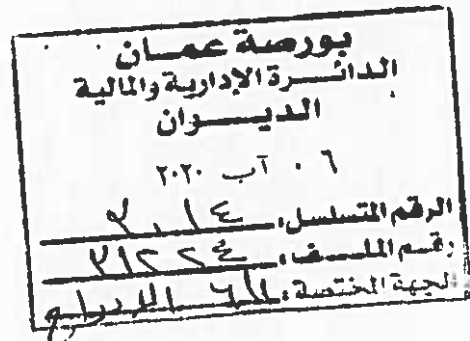 بورصة عمان
الدائرة الإدارية والمالية
الديوان
٠٦ آب ٢٠٢٠
الرقم المتسلسل: ٣٠١٤
رقم الملف: ٣١٢٢٤
الجهة المختصة: